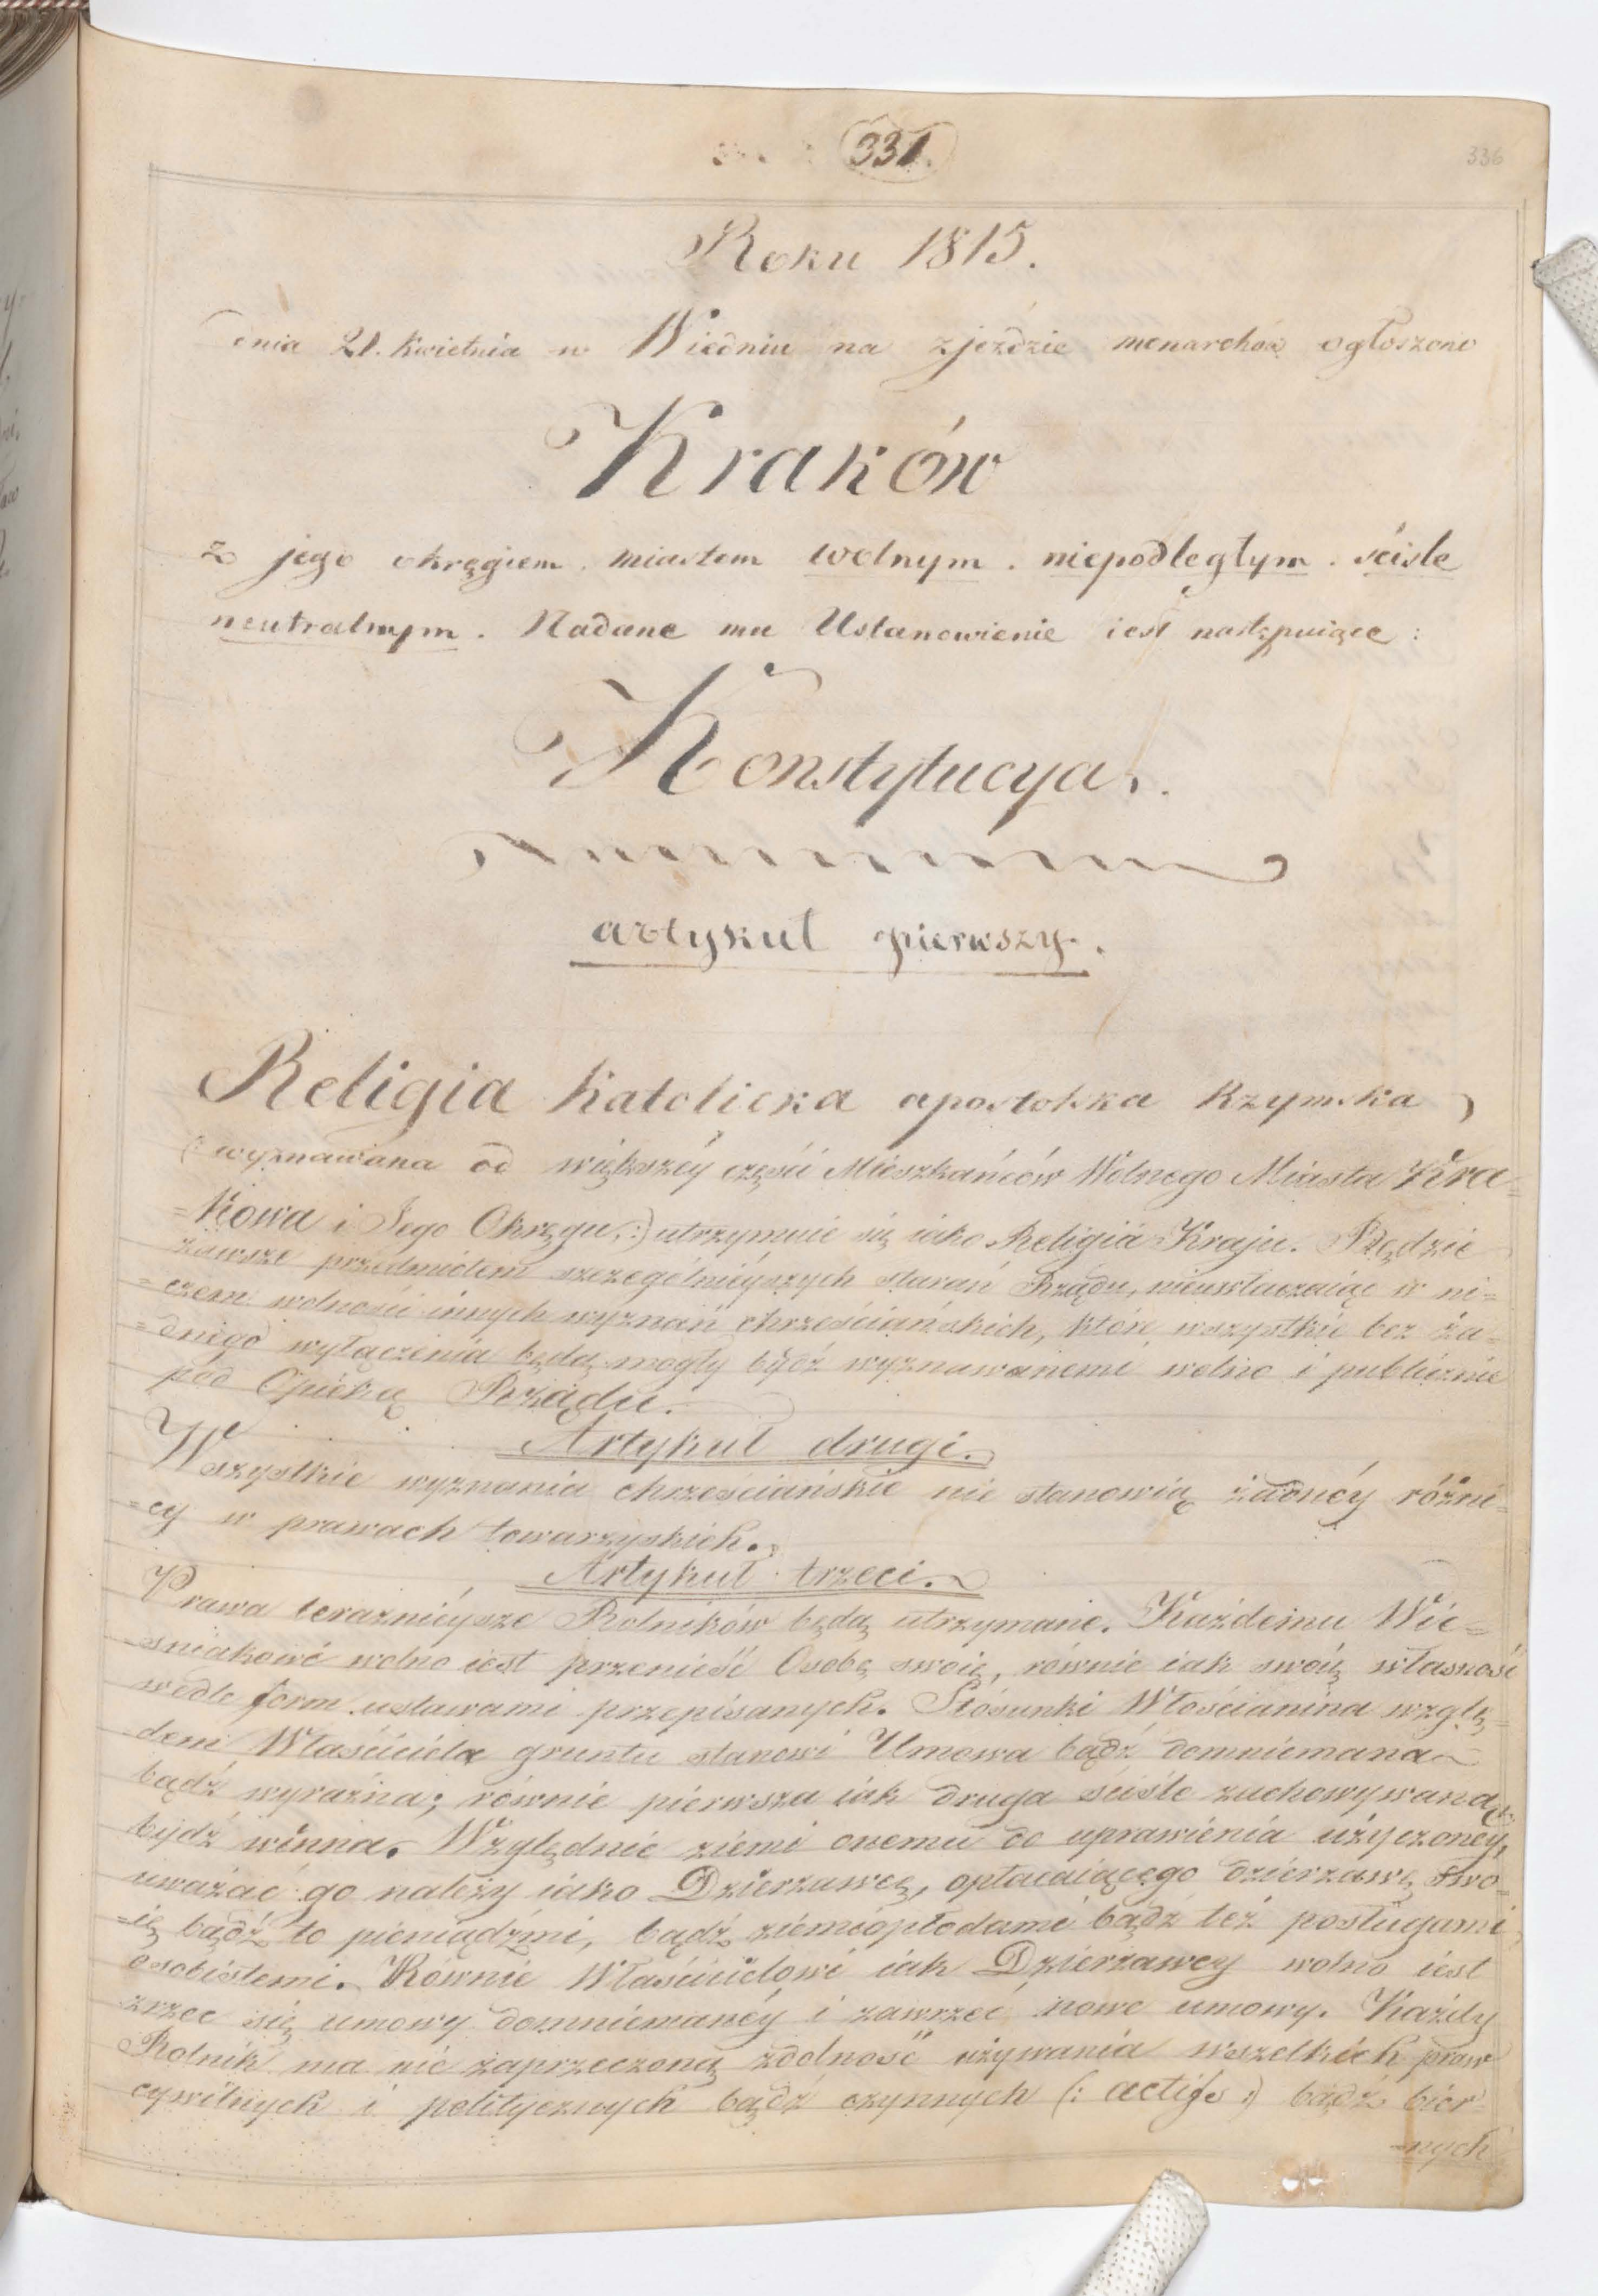 331.
336
Roku 1815.
dnia 21. kwietnia w Wiedniu na zjeździe monarchów ogłoszono
Kraków
z jego okręgiem. miastem wolnym. niepodległym. ściśle
neutralnym. Nadane mu Ustanowienie iest następuiące:
Konstytucya.
artykuł pierwszy.
Religia katolicka apostolska Rzymska,
(: wyznawana od większéy części Mieszkańców Wolnego Miasta Kra=
=kowa i Jego Okręgu,:) utrzymuie się iako Religiia Kraju. Będzie
zawsze przedmiotem szczególnieyszych starań Rządu, nieuwłaczaiąc w ni=
=czem wolności innych wyznań chrześciańskich, które wszystkie bez ża=
=dnego wyłączenia będą mogły bydź wyznawanemi wolno i publicznie
pod Opieką Rządu.
Artykuł drugi.
Wszystkie wyznania chrześciańskie nie stanowią żadnéy różni=
=cy w prawach towarzyskich.
Artykuł trzeci.
Prawa teraznieysze Rolników będą utrzymane. Każdemu Wie=
=sniakowi wolno iest przenieść Osobę swoię, równie iak swoią własność
wedle form ustawami przepisanych. Stósunki Włościanina wzglę=
dem Właściciela gruntu stanowi Umowa bądź domniemana
bądź wyraźna; równie pierwsza iak druga ściśle zachowywaną
bydź winna. Względnie ziemi onemu do uprawienia użyczonéy,
uważać go należy iako Dzierzawcę, opłacaiącego dzierzawę swo=
=ię bądź to pieniądzmi, bądź ziemiopłodami bądź też posługami
osobistemi. Równie Właścicielowi iak Dzierzawcy wolno iest
zrzec się umowy domniemanéy i zawrzeć nowe umowy. Każdy
Rolnik ma nie zaprzeczoną zdolność używania wszelkich praw
cywilnych i politycznych bądź czynnych (: actifs :) bądź bier=
=nych